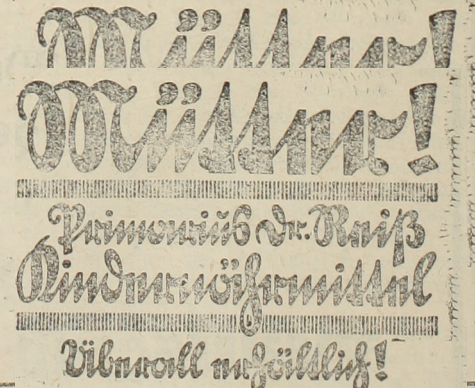 Mütter!
Mütter!
Primarius Dr. Reiß
Kindernährmittel
Überall erhältlich!